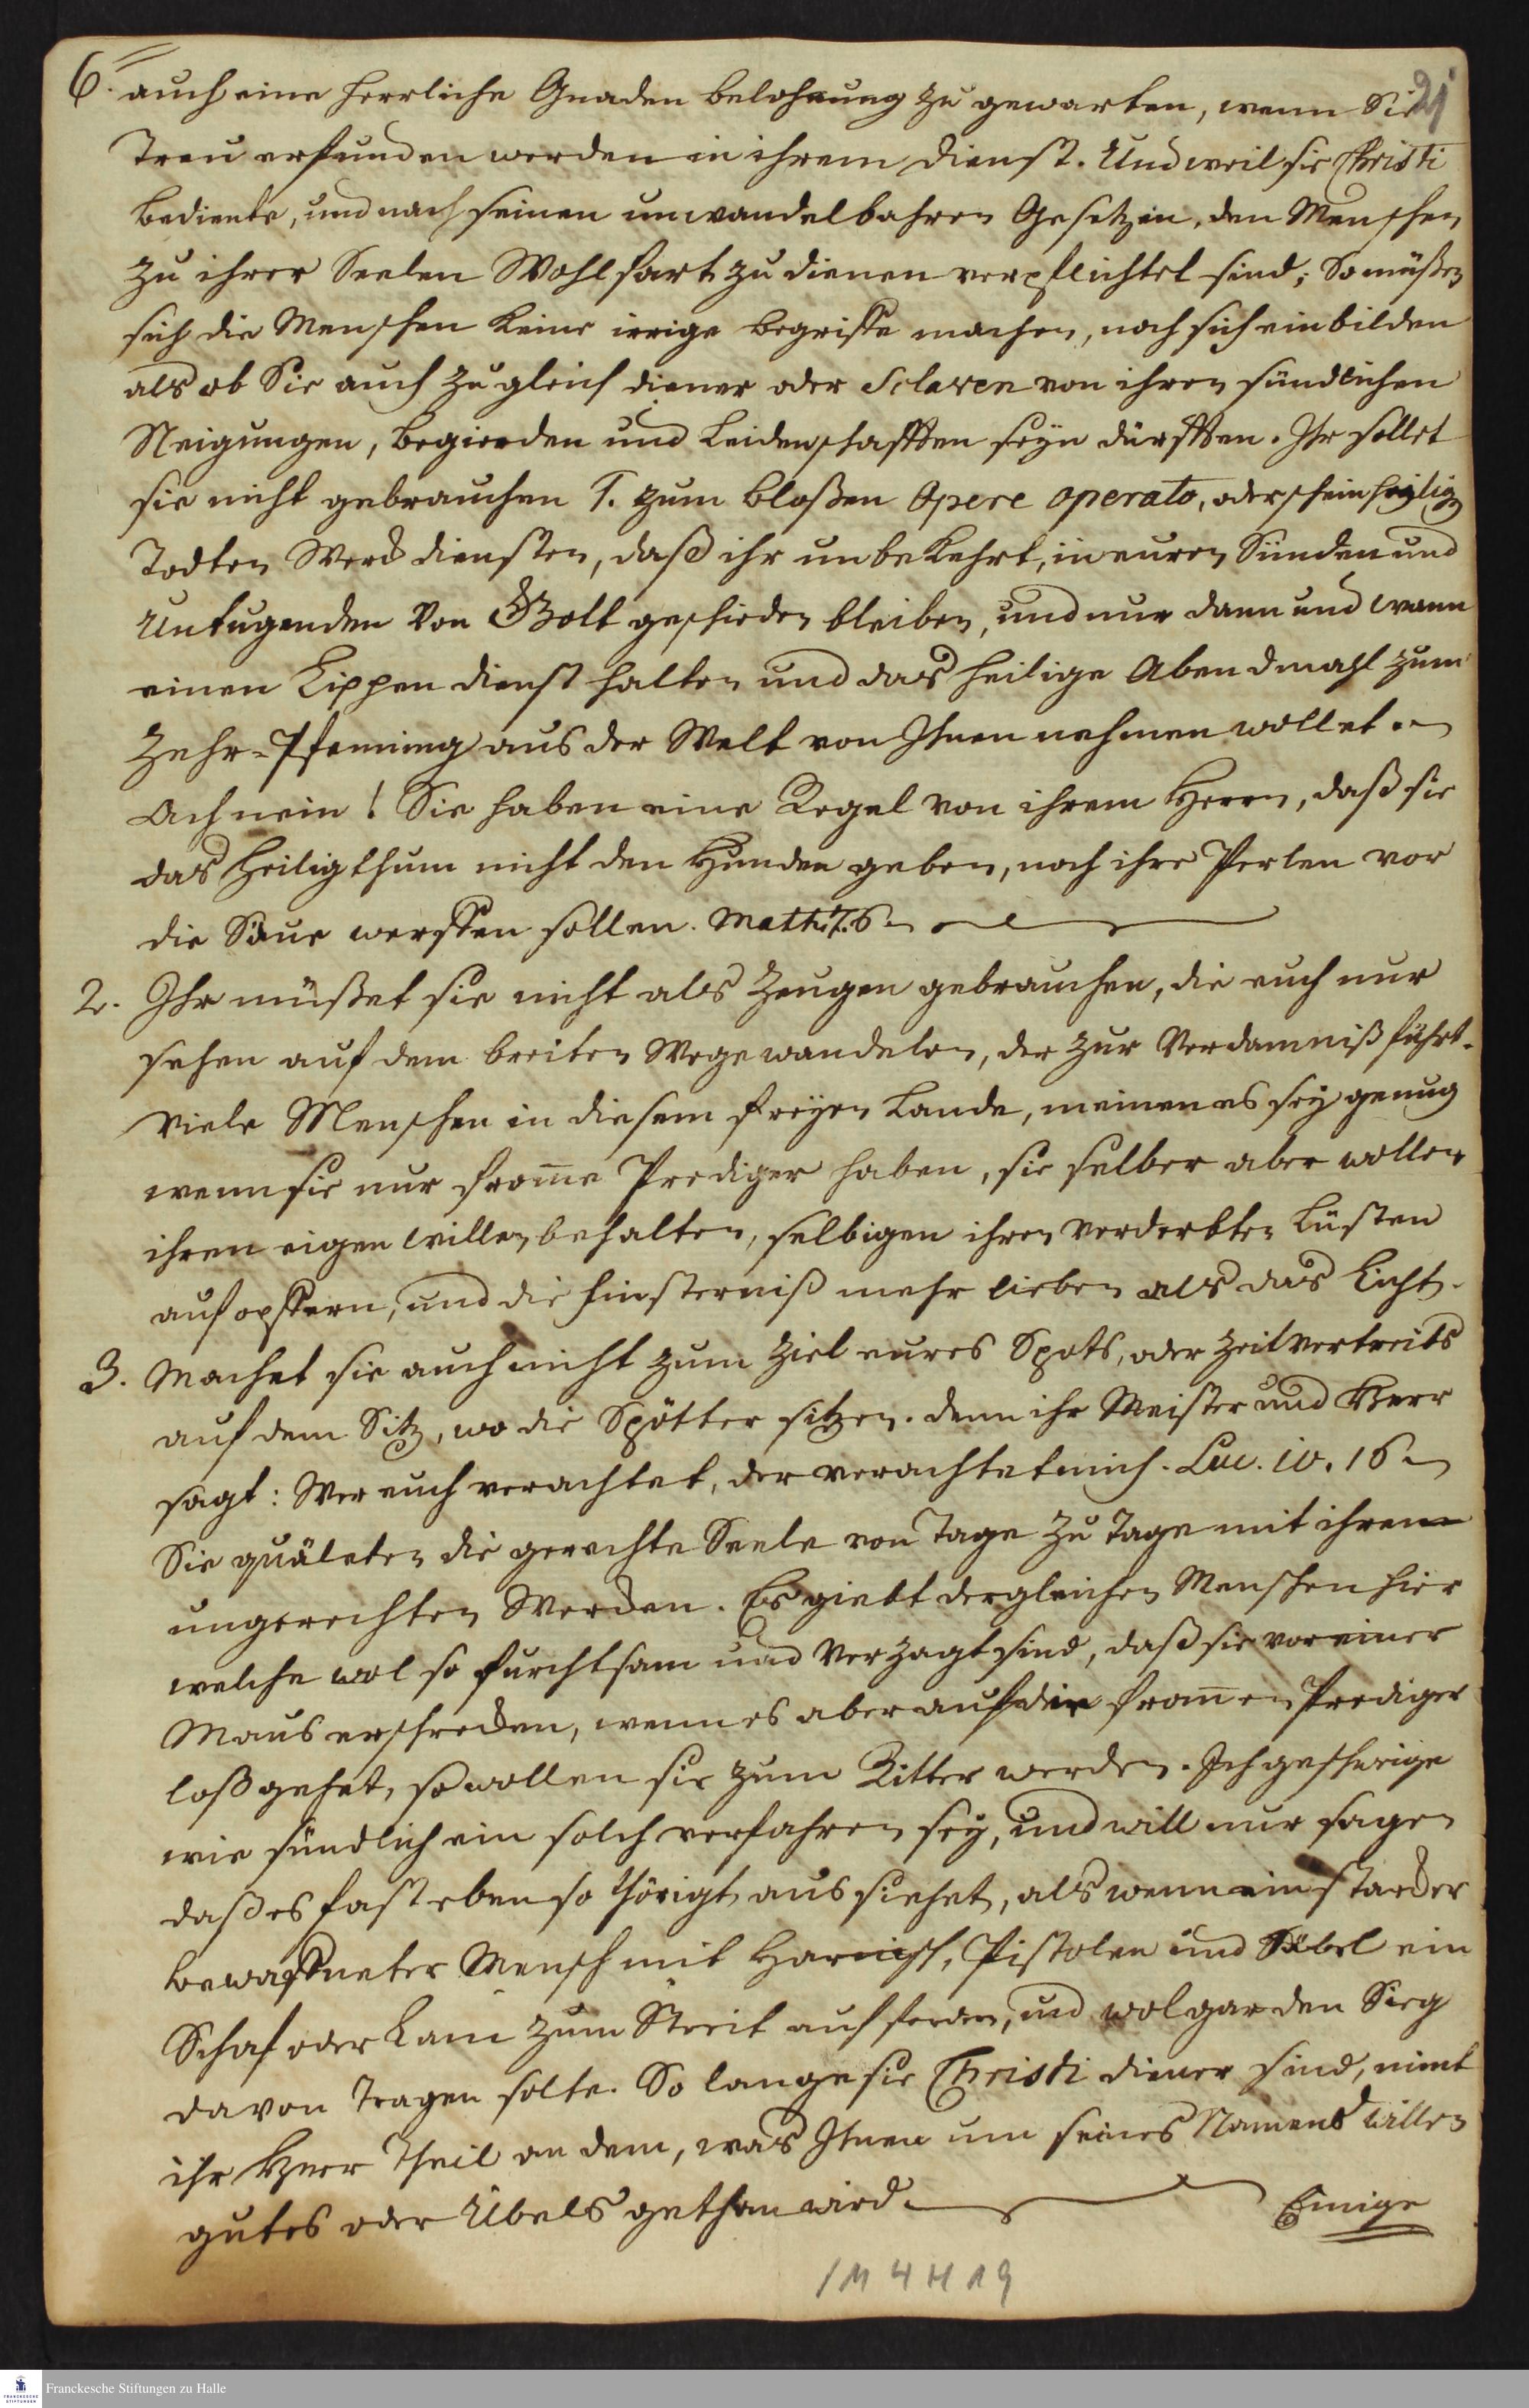 6. auch eine herrliche Gnaden belohnung zu gewarten, wenn Sie 21
Treu erfunden werden in ihrem dienst. Und weil sie Christi
bediente, und nach seinen unwandelbahren Gesetzen, den Menschen
zu ihrer Seelen Wohlfart zu dienen verpflichtet sind; So müßen
sich die Menschen keine irrige begriffe machen, noch sich einbilden
als ob Sie auch zugleich diener oder Sclaven von ihren sündlichen
Neigungen, begierden und Leidenschafften seyn dürfften. Ihr sollet
sie nicht gebrauchen 1. zum bloßen Opere operato, oder scheinheylig
Todten Werck diensten, daß ihr unbekehrt, in euren Sünden und
Untugenden Von Gott geschieden bleiben, und nur dann und wann
einen Lippen dienst halten und das heilige Abendmahl zum
Zehr-Pfenning aus der Welt von Ihnen nehmen wollet.
Ach nein! Sie haben eine Regel von ihrem Herrn, daß sie
das Heiligthum nicht den Hunden geben, noch ihre Perlen vor
die Säue werffen sollen. Matth. 7.6
2. Ihr müßet sie nicht als Zeugen gebrauchen, die euch nur
sehen auf dem breiten Wege wandelen, der zur Verdamniß führt.
Viele Menschen in diesem freyen Lande, meinen es sey genug
wenn sie nur from̄e Prediger haben, sie selber aber wollen
ihren eigen willen behalten, selbigen ihren verderbten Lüsten
aufopffern, und die finsterniß mehr lieben als das Licht.
3. Machet sie auch nicht zum Ziel eures Spots, oder zeitvertreibs
auf dem Sitz, wo die Spötter sitzen. denn ihr Meister und Herr
sagt: Wer euch verachtet, der verachtet mich. Luc. 10. 16
Sie quäleten die gerechte Seele von Tage zu Tage mit ihren
ungerechten Wercken. Es giebt dergleichen Menschen hier
welche wol so furchtsam und Verzagt sind, daß sie vor einer
Maus erschrecken, wenn es aber auf die from̄en Prediger
loß gehet, so wollen sie zum Ritter werden. Ich geschweige
wie sündlich ein solch verfahren sey, und will nur sagen
daß es fast eben so thörigt aus siehet, als wenn ein starcker
bewaffneter Mensch mit Harnisch, Pistolen und Säbel ein
Schaf oder Lam zum Streit auf fordern, und wol gar den Sieg
davon Tragen solte. So lange sie Christi diener sind, nimt
ihr Herr Theil an dem, was Ihnen um seines Namens willen
gutes oder Übels gethan wird.
Einige
1 M 4 H 19
Franckesche Stiftungen zu Halle
FRANCKESCHE STIFTUNGEN